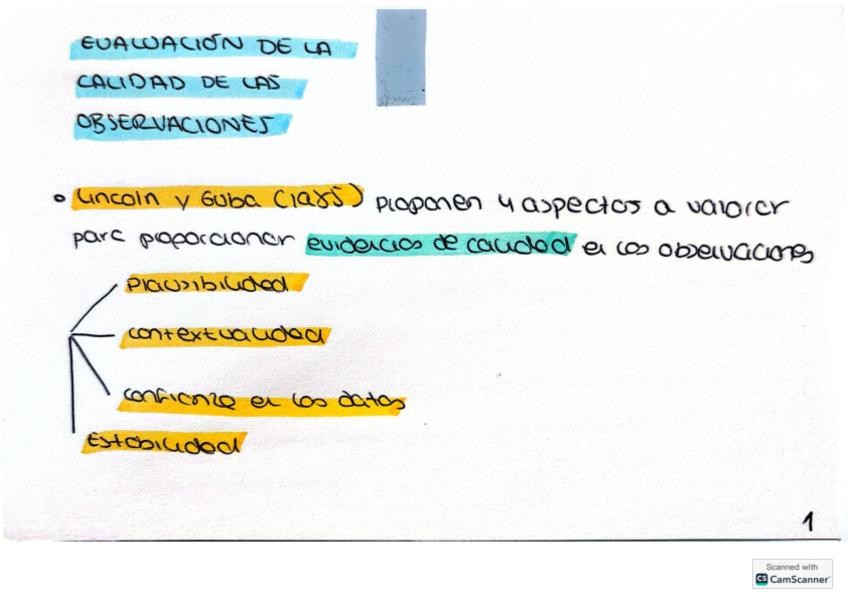 EVALUACIÓN DE LA
CALIDAD DE LAS
OBSERVACIONES
• Lincoln y Guba (1985) proponen 4 aspectos a valorar
para proporcionar evidencias de calidad en las observaciones
Plausibilidad
contextualidad
confianza en los datos
Estabilidad
1
Scanned with
CS CamScanner